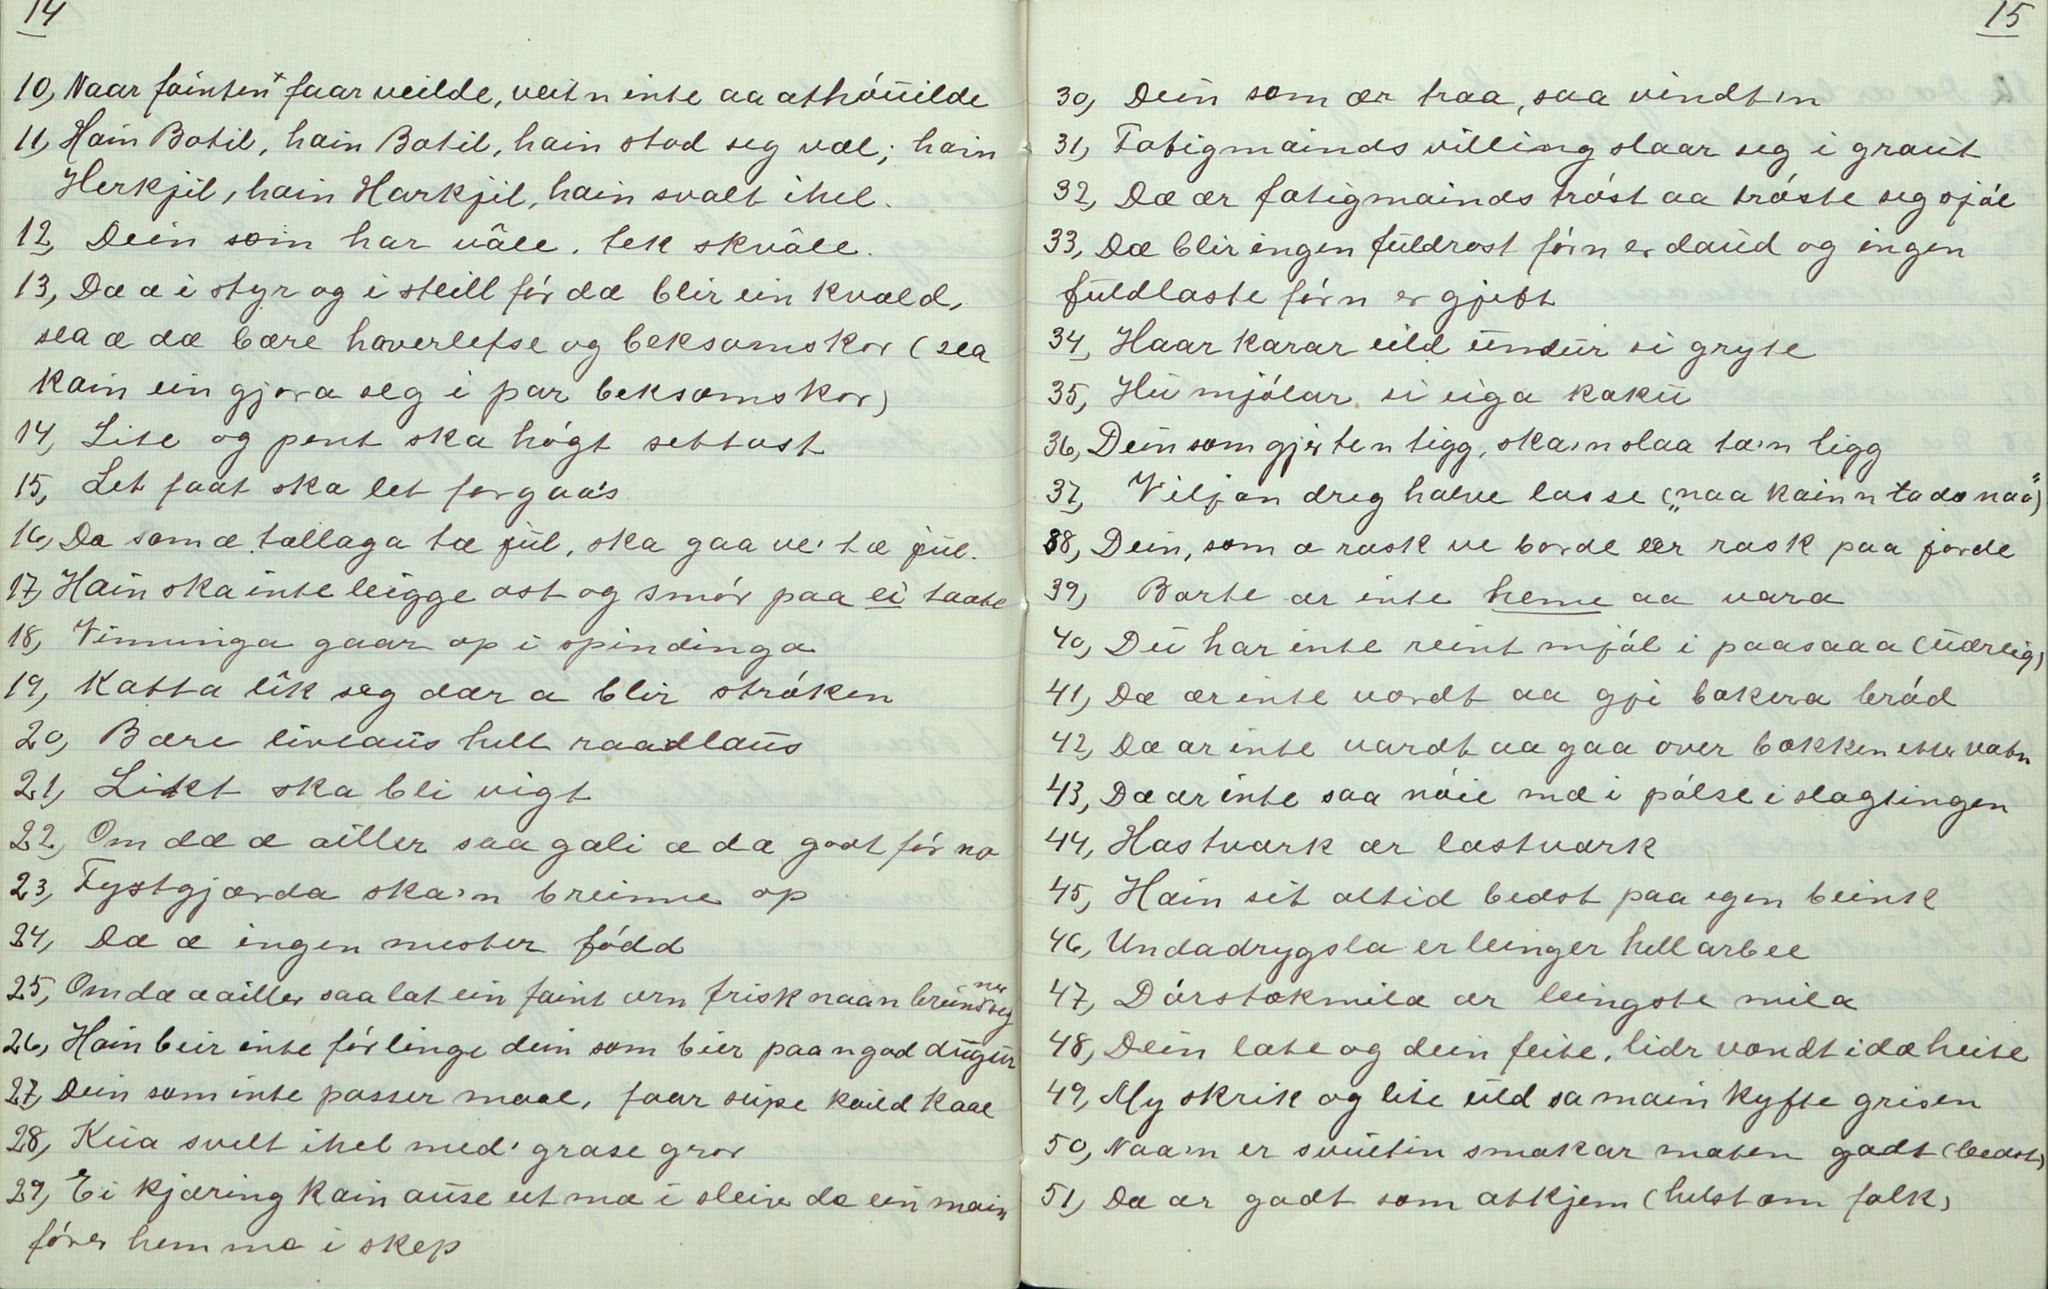 14
10, Naar fáinten× faar veilde, veit n inte aa at hó vilde
11, Hain Botil, hain Botil, hain stod seg væl; hain
Herkjil, hain Harkjil, hain svalt ihel.
12, Dein soin har vâle, tek skvâle.
13, Dæ æ i styr og i steill fór dæ blir ein kvæld,
sea æ dæ bære haverlefse og beksømskor (sea
kain ein gjøra seg i par beksømskor)
14, Lite og pent ska hógt settast
15, Let faat ska let forgaa's
16, Da som æ tællaga tæ jul, ska gaa ve' tæ jul.
17, Hain ska inte leigge ost og smór paa ei taate
18, Vinninga gaar op i spindinga
19, Katta lîk seg dær a blir stróken
20, Bære livlaus hell raadlaus
21, Likt ska bli vigt
22, Om dæ æ aíller saa gali æ dæ godt fór no
23, Tystgjærda ska'n breinne op
24, Dæ æ ingen mester fódd
25, Om dæ æ aíller saa lat ein faint ern frisk naa n breinner seg
26, Hain beir inte fór linge dein som bier paa n god dugur
27, Dein som inte passer maal, faar supe kaild kaal
28, Kua svelt ihel med' grase gror
29, Ei kjæring kain ause ut mæ i sleiv dæ ein main
fórer hem mæ i skep
15
30, Dein som ær traa, saa vindt'n
31, Fatigmainds villing slaar seg i graut
32, Dæ ær fatigmainds tróst aa tróste seg sjól
33, Dæ blir ingen fuldrost fórn er daud og ingen
fuldlaste fórn er gjift
34, Haar karar eild undur si gryte
35, Hu mjólar si eiga kaku
36, Dein som gjer te n tigg, ska'n slaa ta'n ligg
37, Viljan dreg halve lasse („naa kain n ta do naa")
38, Dein, som a rask ve borde ær rask paa jorde
39, Borte ær inte heme aa vara
40, Du har inte reint mjól i paasaaa (udrlig)
41, Dæ ær inte værdt aa gji bakera bród
42, Dæ ær inte værdt aa gaa over bækken etter vatn
43, Dæ ær inte saa nóie mæ i pólse i slagtingen
44, Hastværk ær lastværk
45, Hain sit altid bedst paa egen beink
46, Undadrygsla er leinger hell arbee
47, Dórstokmila ær leingste mila
48, Dein late og dein feite, lidr vondt i dæ heite
49, My skrik og lite uld sa main kyfte grisen
50, Naa'n er svultin smakar maten godt (bedst)
51, Dæ ær godt som atkjem (helst om folk)